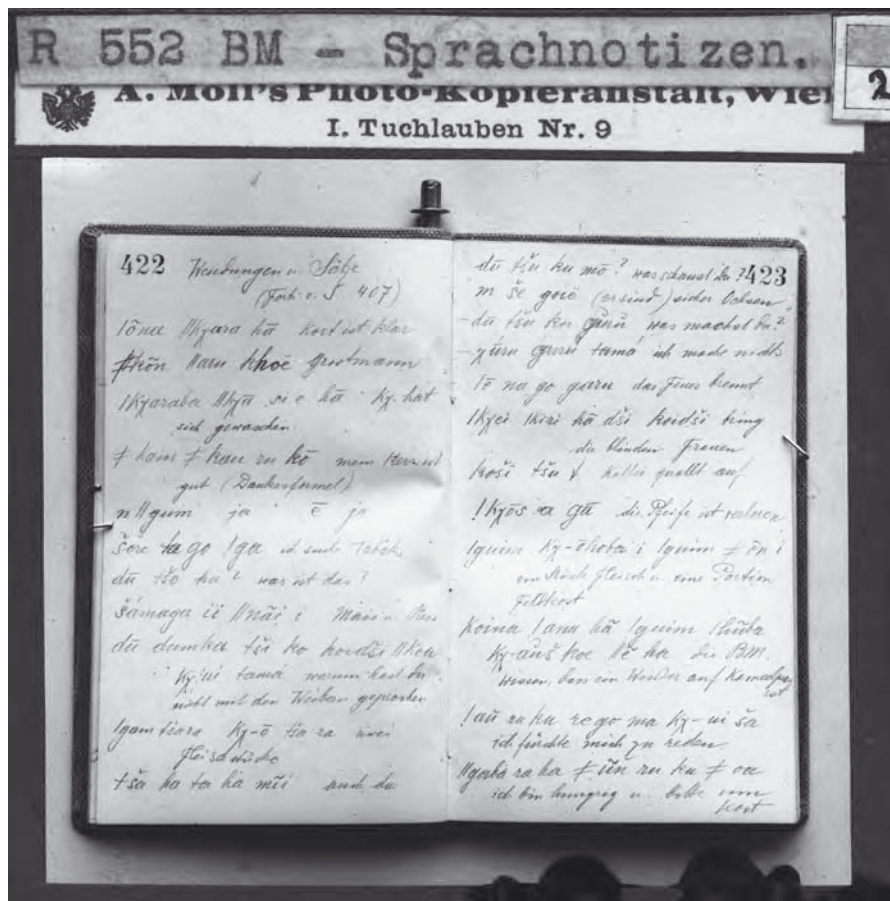 R 552 BM - Sprachnotizen.
A. Moll's Photo-Kopieranstalt, Wien
I. Tuchlauben Nr. 9
2
422 Wendungen u. Sätze
(Fort. v. S 407)
ǀõna ǁkyara hā kost ist klar
ǂkõn ǁaru khoë Grootmann
ǀkyaraba ǁkyā si e hā Ky. hat
sich gewaschen
ǂ kam ǂ kau ru kō mein Herz ist
gut (Dankesformel)
n ǁgum ja ē ja
šore ta go ǀga ich Tabak
dū tšo ha? was ist das?
šámaga ii ǁnãi i Mais u.
dū dumka tši ko koidši ǁkou
Ky-ui tamá warum hast du
nicht mit den Weibern gesprochen
ǀgam tsara Ky-õ tsa ra zwei
Fleischstücke
tša ha ta ha mĩi auch du
423
dū tšu ku mõ? was schaust du?
m še goië (er sind) sicher Ochsen
- dū tšu ku gurú was machst du?
gurú tamá ich mache nichts
ǀē na go guru das Feuer brennt
ǀkyei ǀkizi hā dši koidši bring
die blinden Frauen
koši tšu quillt auf
! kyōs a gā die Pfeife ist
ǀguim Ky-õhoba i ǀguim ǂ õn i
ein Stück Fleisch u. eine Portion
Feldkost
Koina ! ana hā ǀguim
Ky-aũš koe ǁē ha die BM.
wissen, dass ein Weisser auf
ist
! aũ ru ku re go ma Ky-ui ša
ich fürchte mich zu reden
ǁgaba ra ha ǂ ũn ru ku ǂ oa
ich bin hungrig u. bitte um
Kost